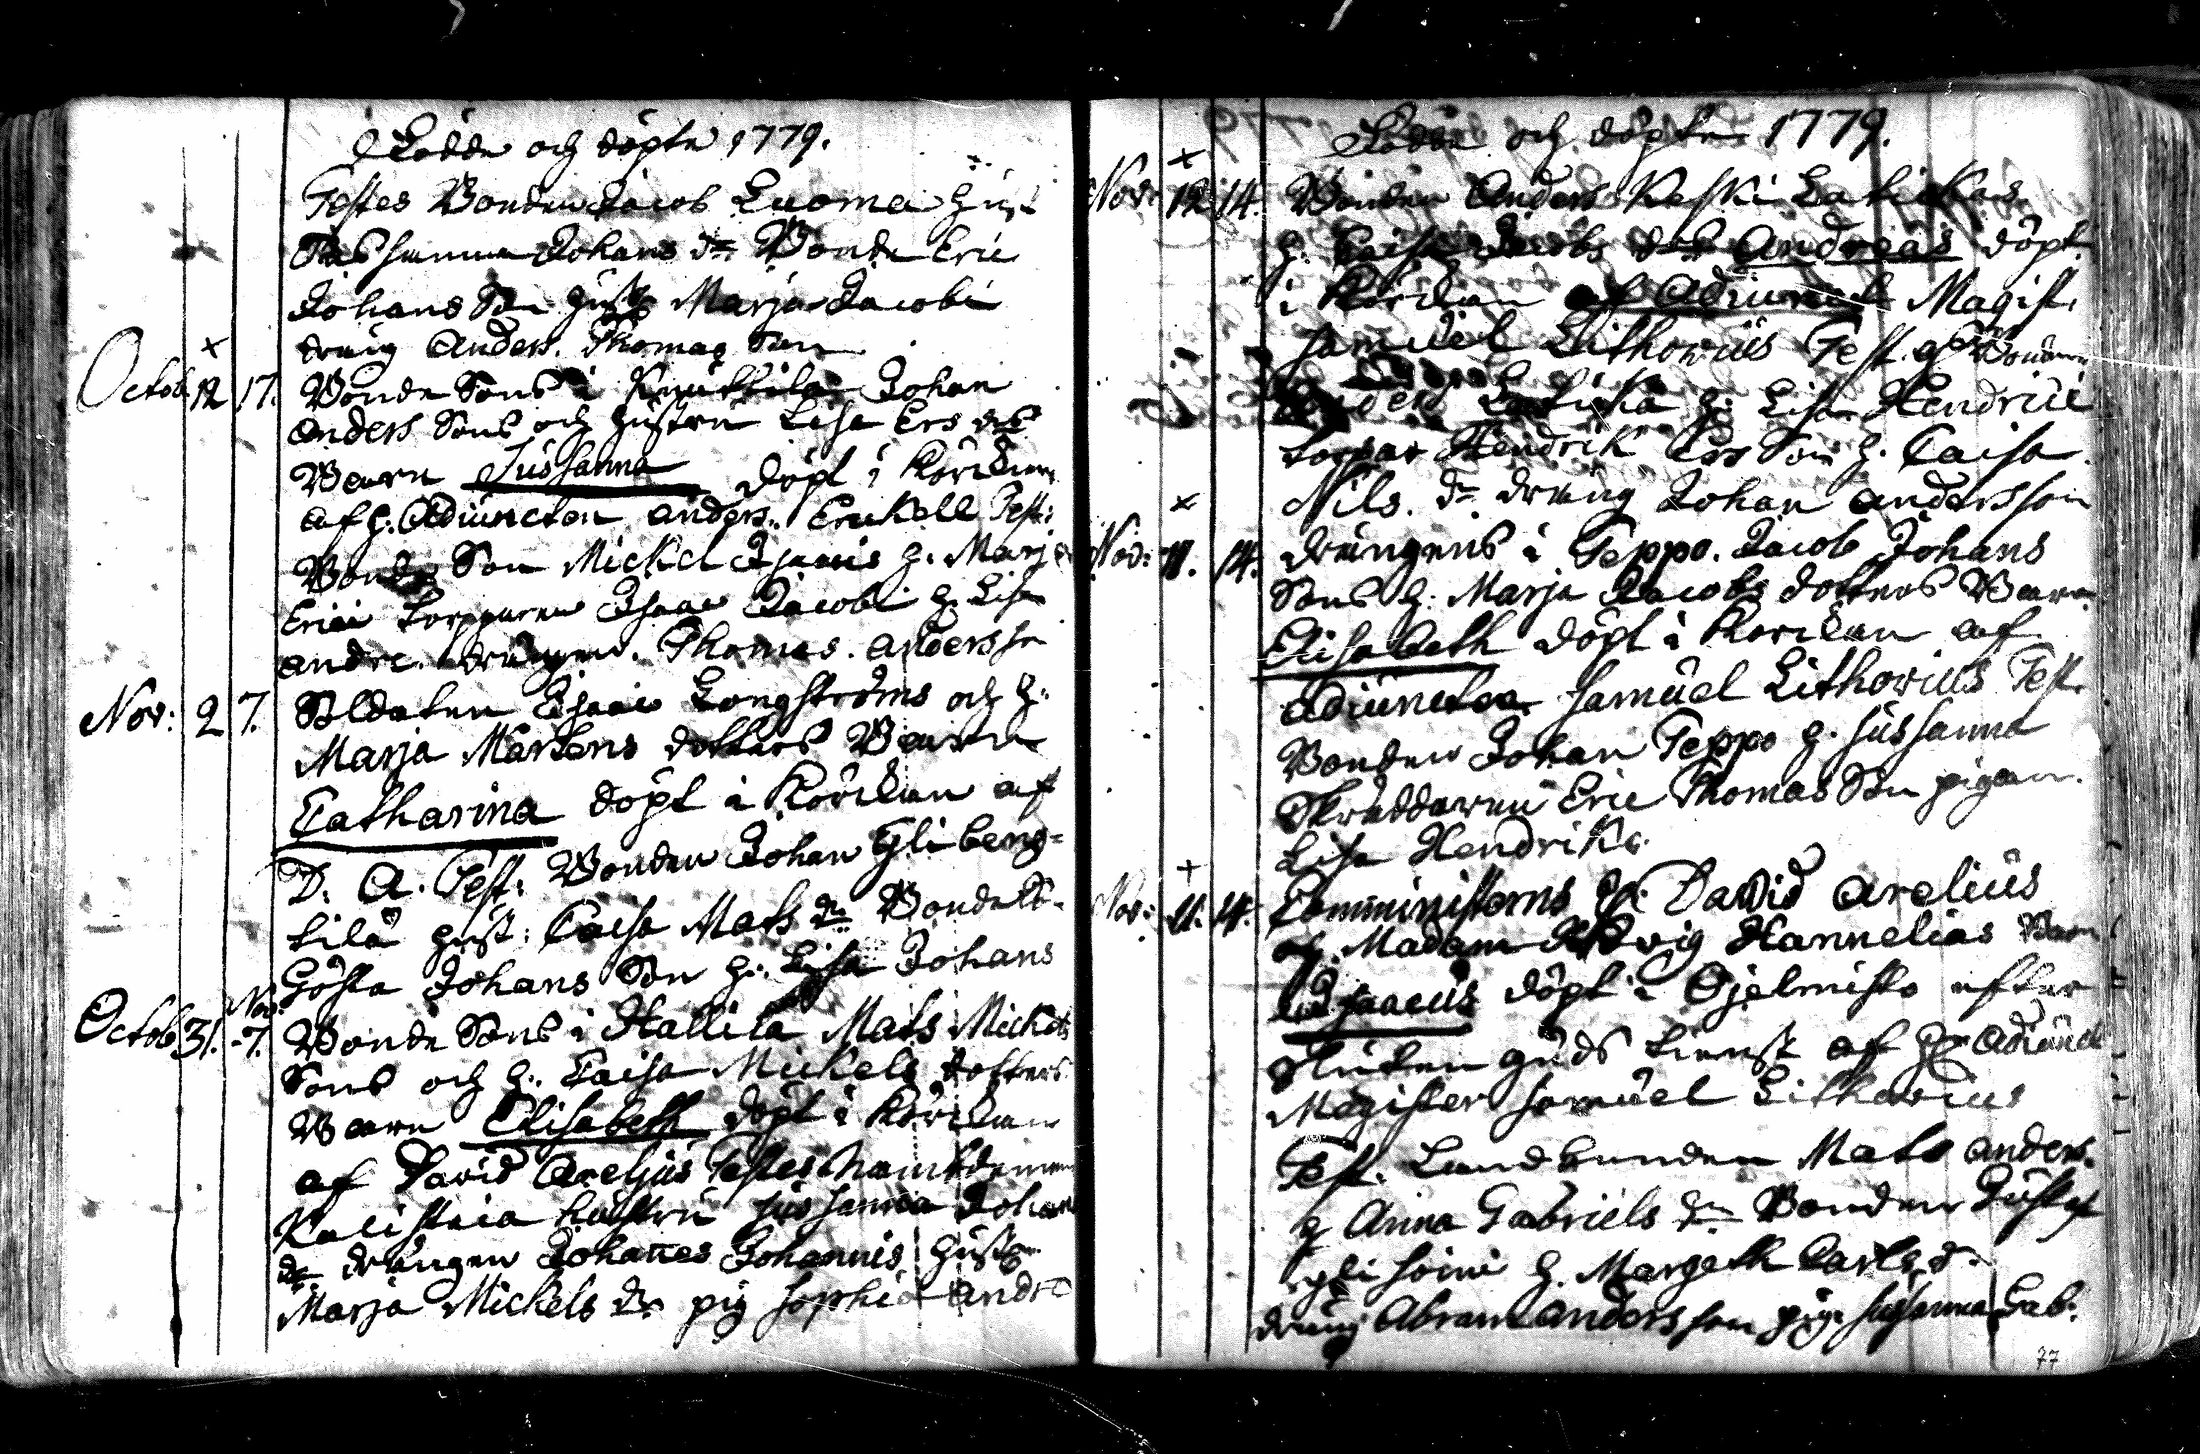 Födde och döpte 1779.
Testes Bonden Jacob Luoma hust
Sussanna Johans dr Bonde Eric
Johans Son hust Marja Jacobi
dräng Anders. Thomas Son
Octob 12 17. Bonde Sons i Knuttila Johan
Anders Sons och hustru Lisa Ers drs
Barn Sussanna döpt i Körckan
af h. Adiuncten anders. Erickell Test:
Bonde Son Mickel Isaacis h. Marja
Erici torpparen Isaac Jacobi h. Lisa
andre. drängen. Thomas. anderss
Nov: 2 7. Soldaten Isaac Longströms och h:
Marja Martens dotters Barn
Catharina döpt i Körckan af
D. A. Test: Bonden Johan Ylibeng=
tilä hust: Caisa Mats dr Bonde
Gösta Johans Son h: Lisa Johans
Octob 31. Nov. 7. Bonde Sons i Hallila Mats Mickels
Sons och h. Caisa Mickels dotters
Barn Elisabeth döpt i Körckan
af David Areljus Testes
hustru Sussanna Johans
dr drängen Johanes Johannis hustr
Marja Mickels dr pig Sophia Andre
Födde och döpte 1779.
Nov: 12 14. Bonden Anders Keski
h. Caisa Jacobs drs Andreas döpt
i Körckan af Adiunct Magist.
Samuel Lithovius Test. Bonden
h: Lisa Hendrici
torpar Hendrik Ers Son h. Caisa
Nils. dr dräng Johan andersson
Nov: 11. 14. drängens i Teppo. Jacob Johans
Sons h. Marja Jacobs dotters Barn
Elisabeth döpt i Körckan af
adiuncten Samuel Lithovius Test.
Bonden Johan Teppo h. Sussanna
Skräddaren Eric Thomas Son pigan.
Lisa Hendriks.
Nov: 11. 14. Comministerns h. David Arelius
och Madam Hedvig Hannelias Barn
Isaacus döpt i efter
sluten guds tienst af hr Adiunct
Magister Samuel Lithovius
Test. Landbonden Mats anders.
h Anna Gabriels dr Bonden Gustaf
Yli soini h. Margeth Carls d.
dräng Abram Andersson pig. Sussanna Gab:
77